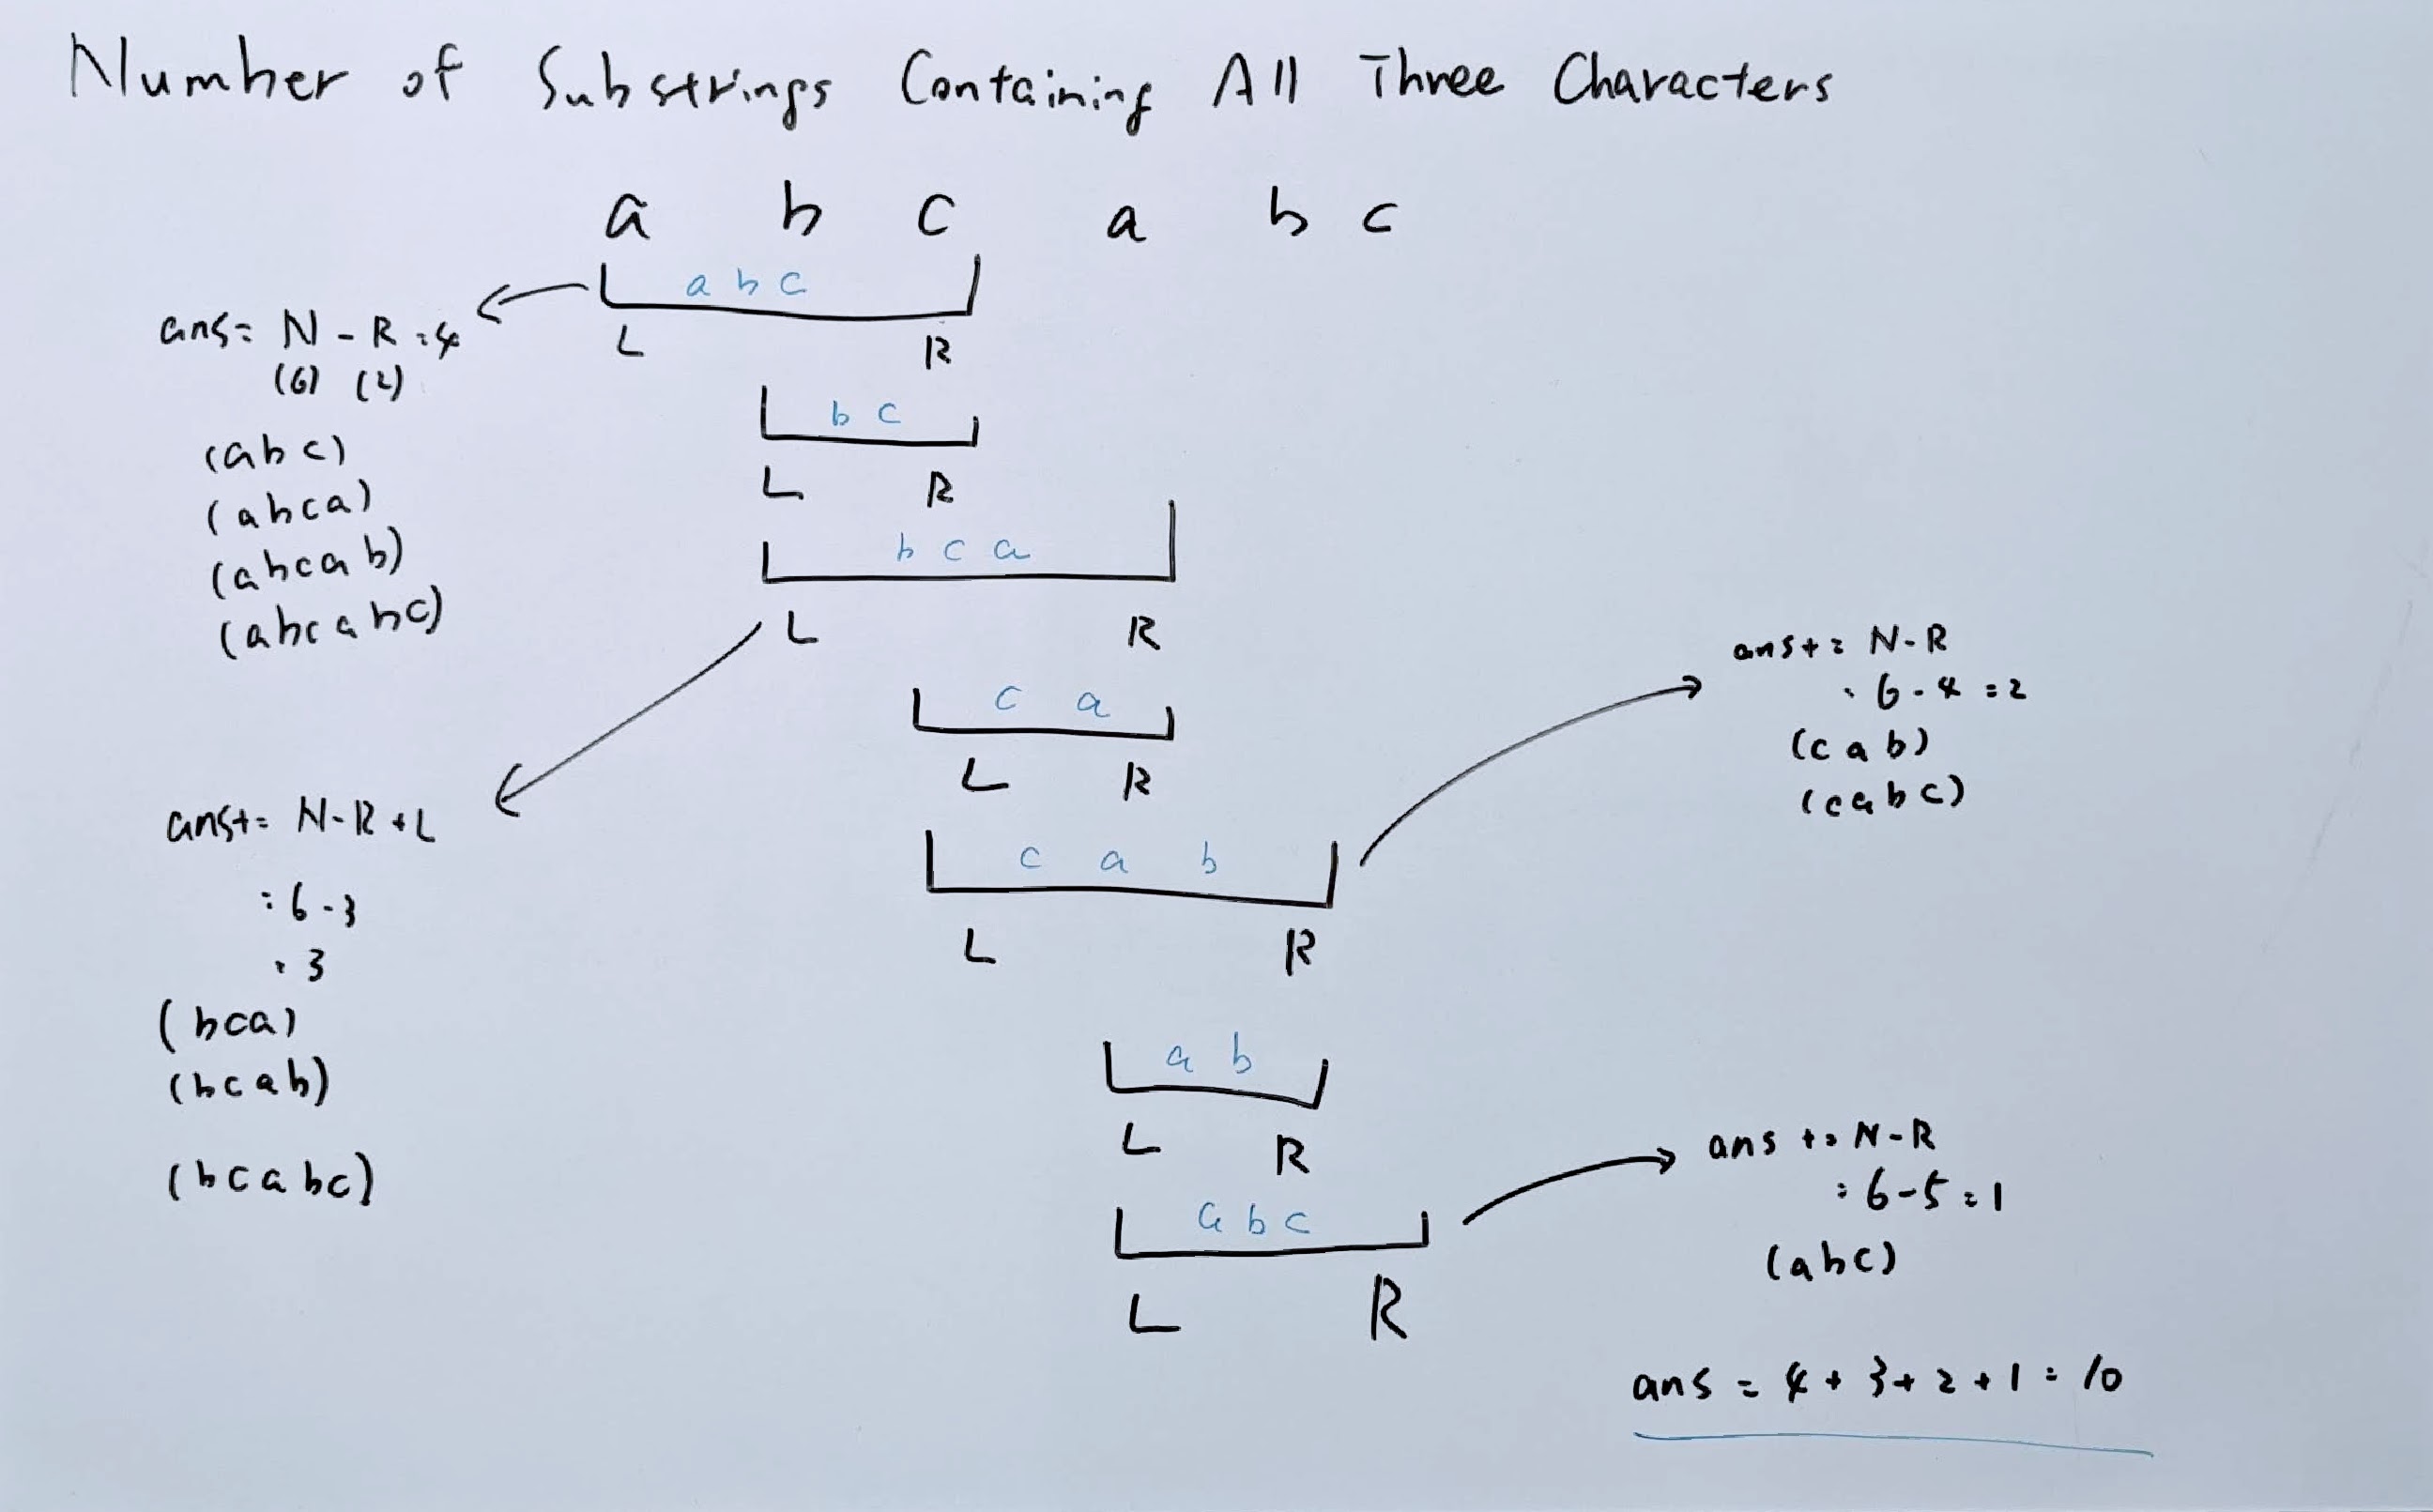 Number of Substrings Containing All Three Characters
a b c a b c
a b c
ans= N - R = 4
(6) (2)
L R
(abc)
(abca)
(abcab)
(abcabc)
b c
L R
b c a
L R
ans+= N-R+L
= 6-3
= 3
(bca)
(bcab)
(bcabc)
c a
L R
c a b
L R
ans+= N-R
= 6-4 =2
(cab)
(cabc)
a b
L R
a b c
L R
ans += N-R
= 6-5 =1
(abc)
ans = 4+3+2+1= 10